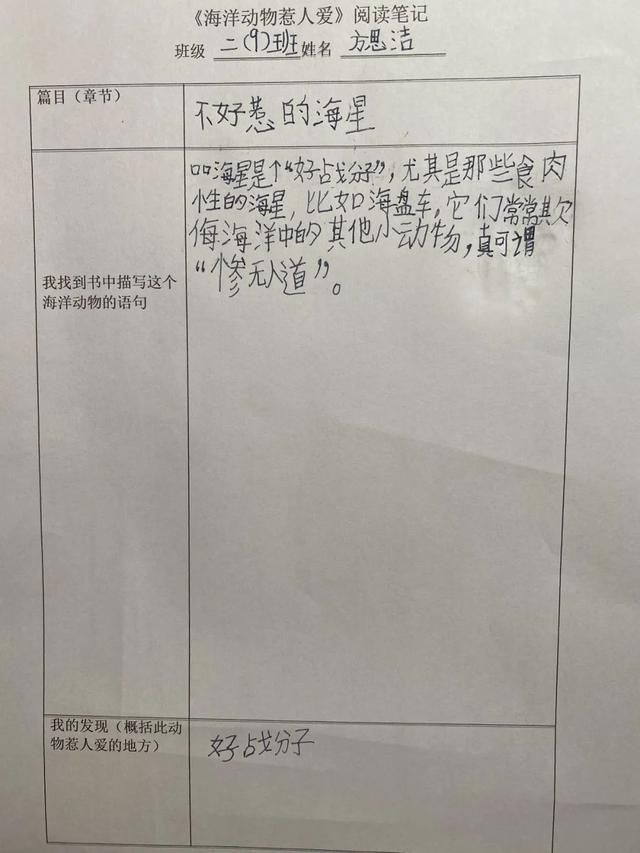 《海洋动物惹人爱》阅读笔记
班级 二(9)班 姓名 方思洁
篇目（章节）
不好惹的海星
我找到书中描写这个
海洋动物的语句
海星是个“好战分子”，尤其是那些食肉
性的海星，比如海盘车，它们常常欺
侮海洋中的其他小动物，真可谓
“惨无人道”。
我的发现（概括此动
物惹人爱的地方）
好战分子